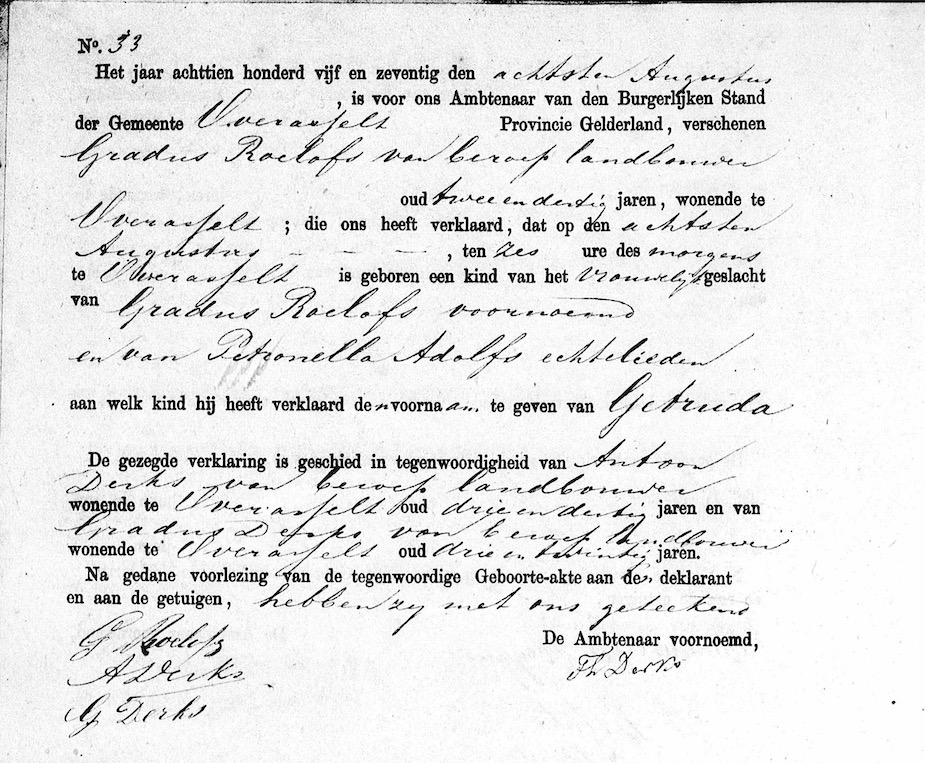 No. 33
Het jaar achttien honderd vijf en zeventig den achtsten Augustus
, is voor ons Ambtenaar van den Burgerlijken Stand
der Gemeente Overasselt Provincie Gelderland, verschenen
Gradus Roelofs van beroep landbouwer
oud twee en dertig jaren, wonende te
Overasselt ; die ons heeft verklaard, dat op den achtsten
Augustus - - - - , ten zes ure des morgens
te Overasselt is geboren een kind van het vrouwelijk geslacht
van Gradus Roelofs voornoemd
en van Petronella Adolfs echtelieden
aan welk kind hij heeft verklaard den voornaam te geven van Getruda
De gezegde verklaring is geschied in tegenwoordigheid van Antoon
Derks van beroep landbouwer
wonende te Overasselt oud drie en dertig jaren en van
Gradus Derks van beroep landbouwer
wonende te Overasselt oud drie en twintig jaren.
Na gedane voorlezing van de tegenwoordige Geboorte-akte aan den deklarant
en aan de getuigen, hebben zy met ons geteekend
G Roelofs
De Ambtenaar voornoemd,
A Derks
Th Derks
G Derks